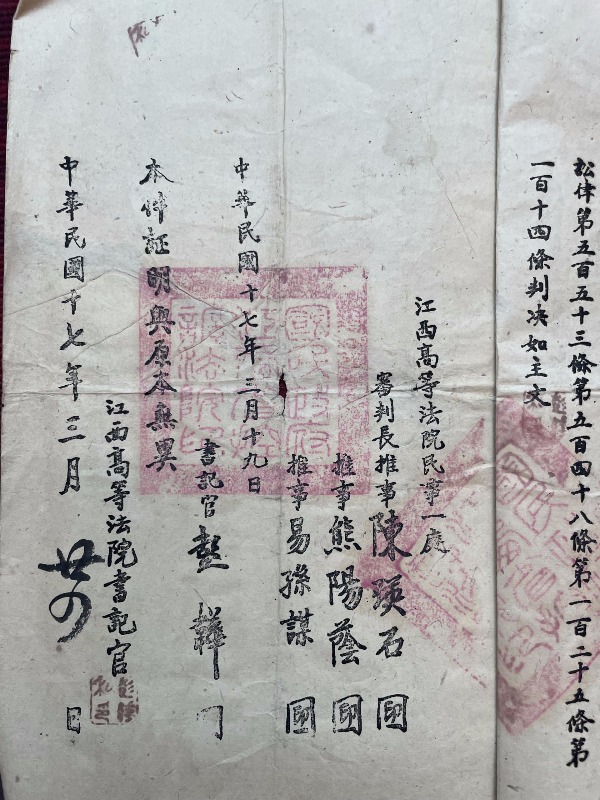 訟律第五百五十三條第五百四十八條第一百二十五條第
一百十四條判决如主文
江西高等法院民事一庭
審判長推事陳瑛石 印
推事熊陽蔭 印
推事易孫謀 印
中華民國十七年三月十九日
書記官
本件証明與原本無異
江西高等法院書記官
中華民國十七年三月 日